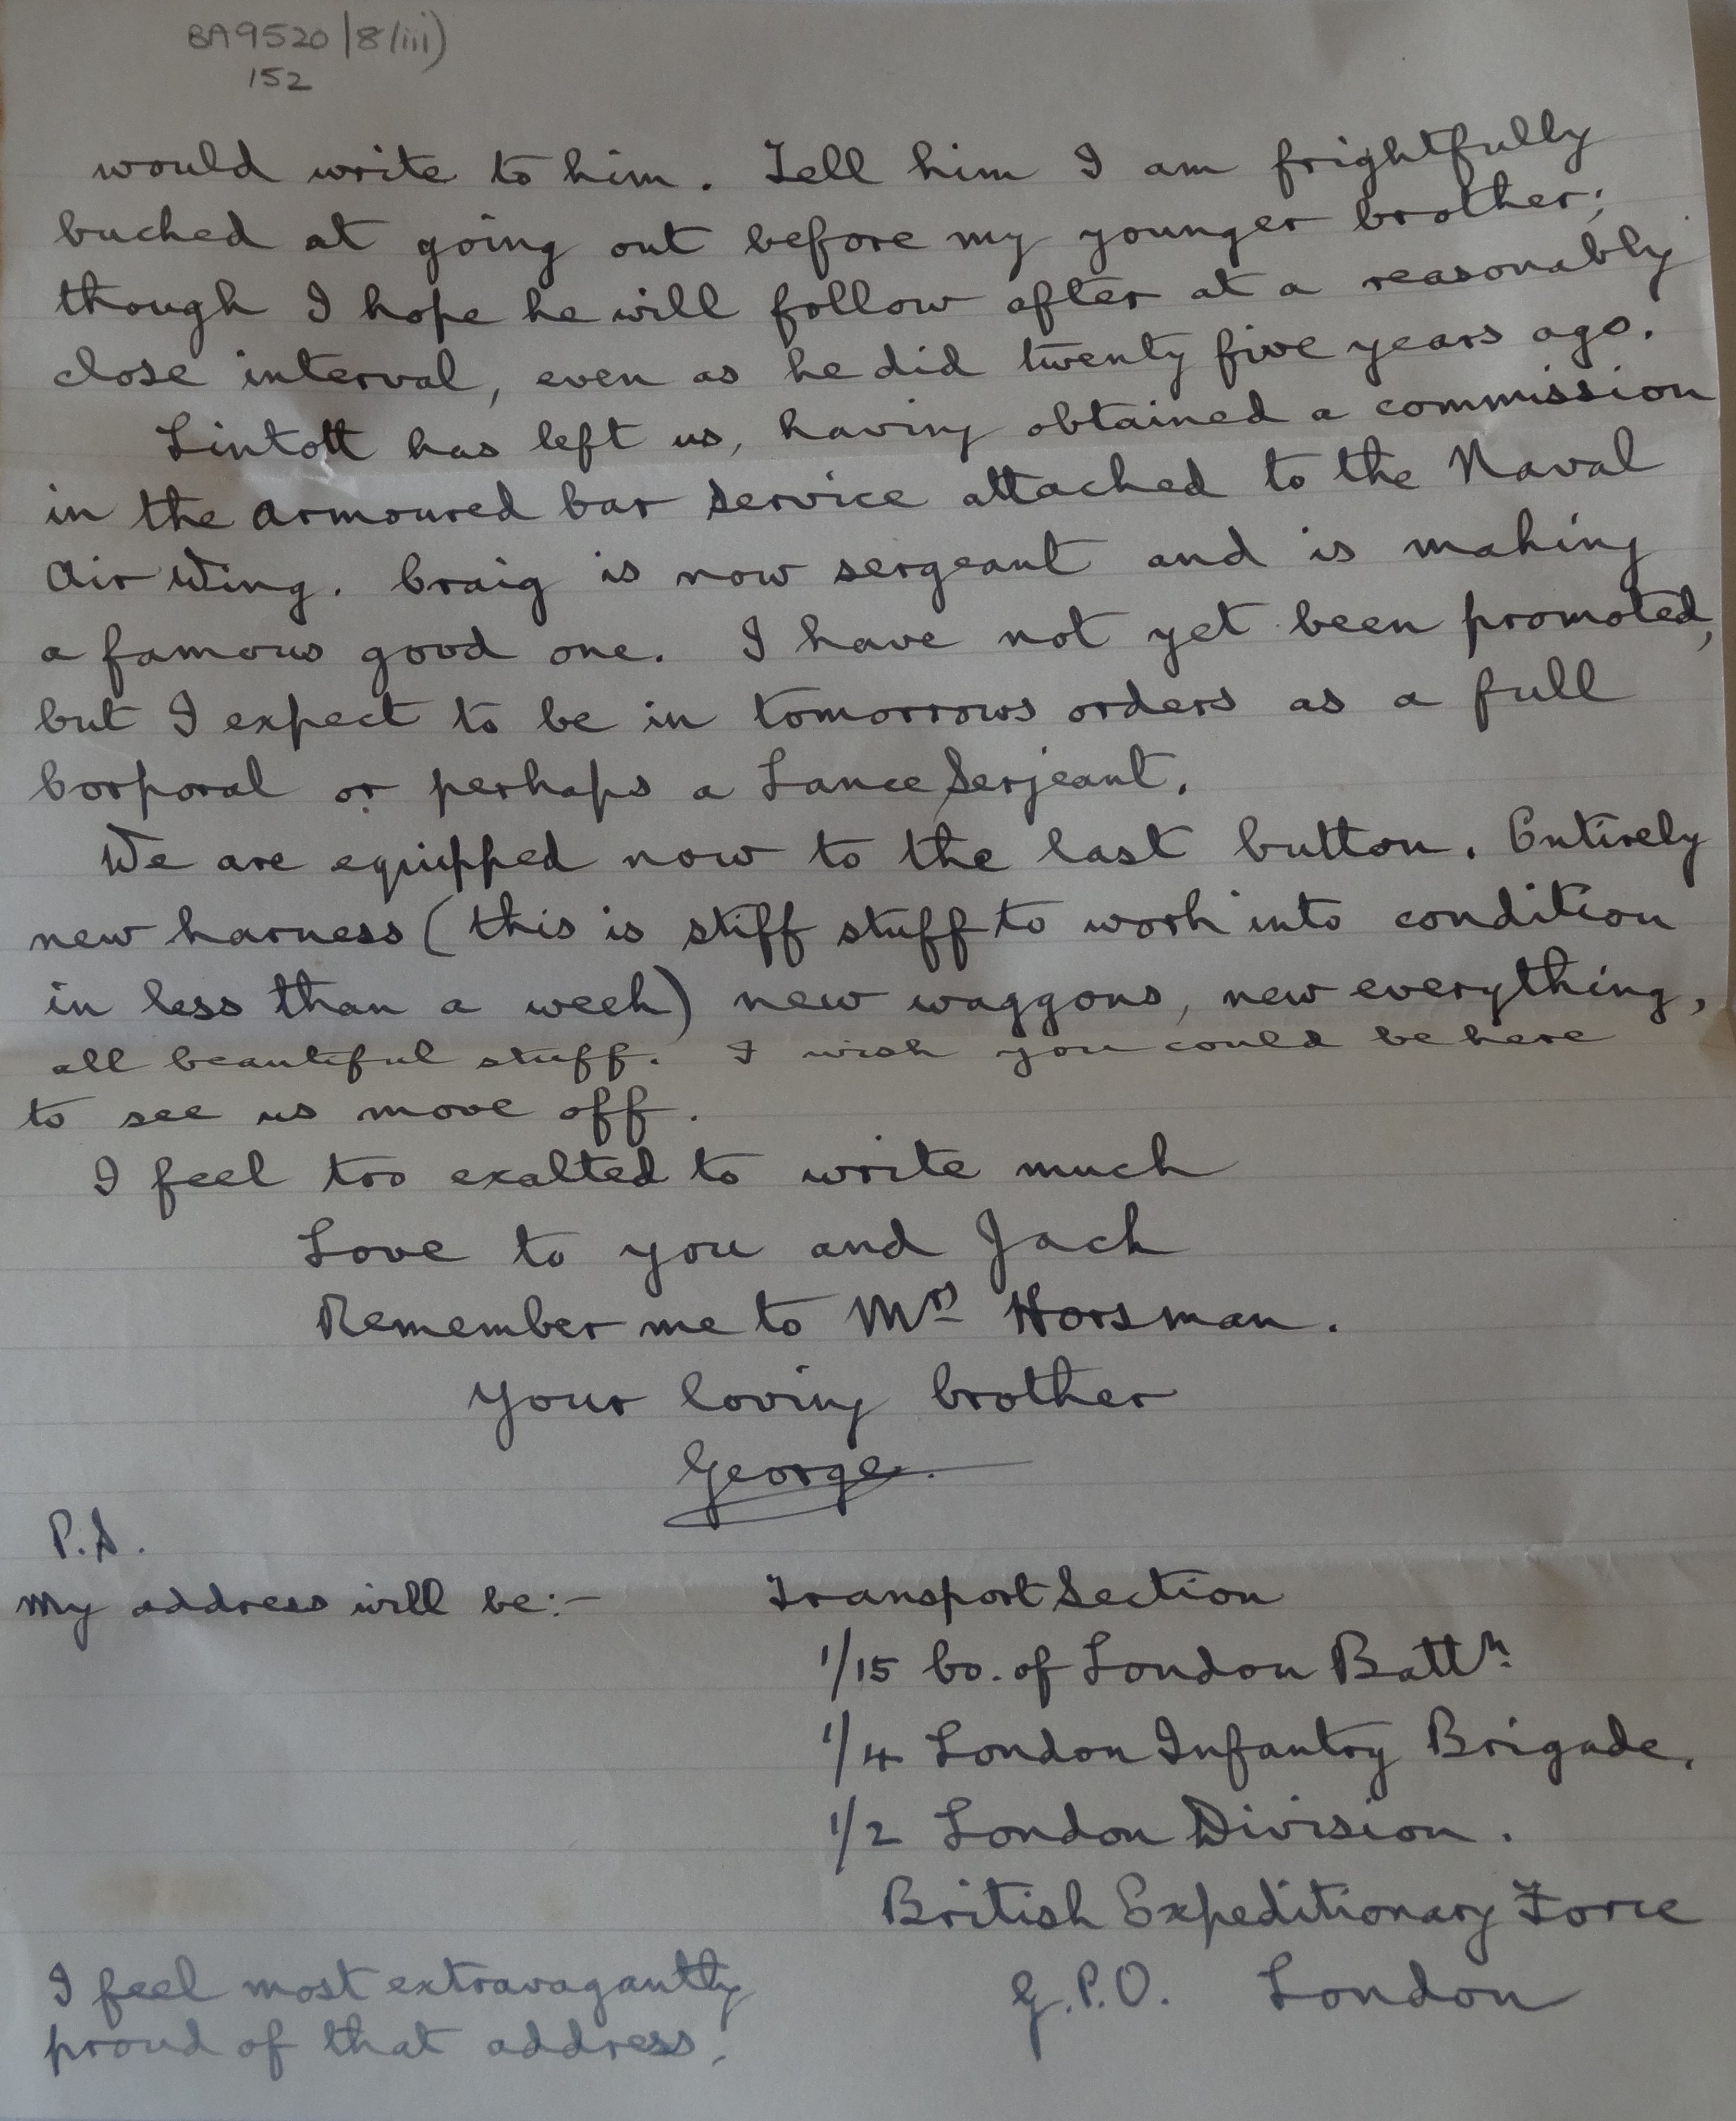 BA9520/8(iii)
152
would write to him. Tell him I am frightfully
bucked at going out before my younger brother;
though I hope he will follow after at a reasonably
close interval, even as he did twenty five years ago.
Lintott has left us, having obtained a commission
in the Armoured Car Service attached to the Naval
Air Wing. Craig is now sergeant and is making
a famous good one. I have not yet been promoted,
but I expect to be in tomorrows orders as a full
Corporal or perhaps a Lance Serjeant.
We are equipped now to the last button. Entirely
new harness (this is stiff stuff to work into condition
in less than a week) new waggons, new everything,
all beautiful stuff. I wish you could be here
to see us move off.
I feel too exalted to write much
Love to you and Jack
Remember me to Mrs Horsman.
Your loving brother
George.
P.S.
My address will be:- Transport Section
1/15 Co. of London Battn.
1/4 London Infantry Brigade.
1/2 London Division.
British Expeditionary Force
G.P.O. London
I feel most extravagantly
proud of that address.